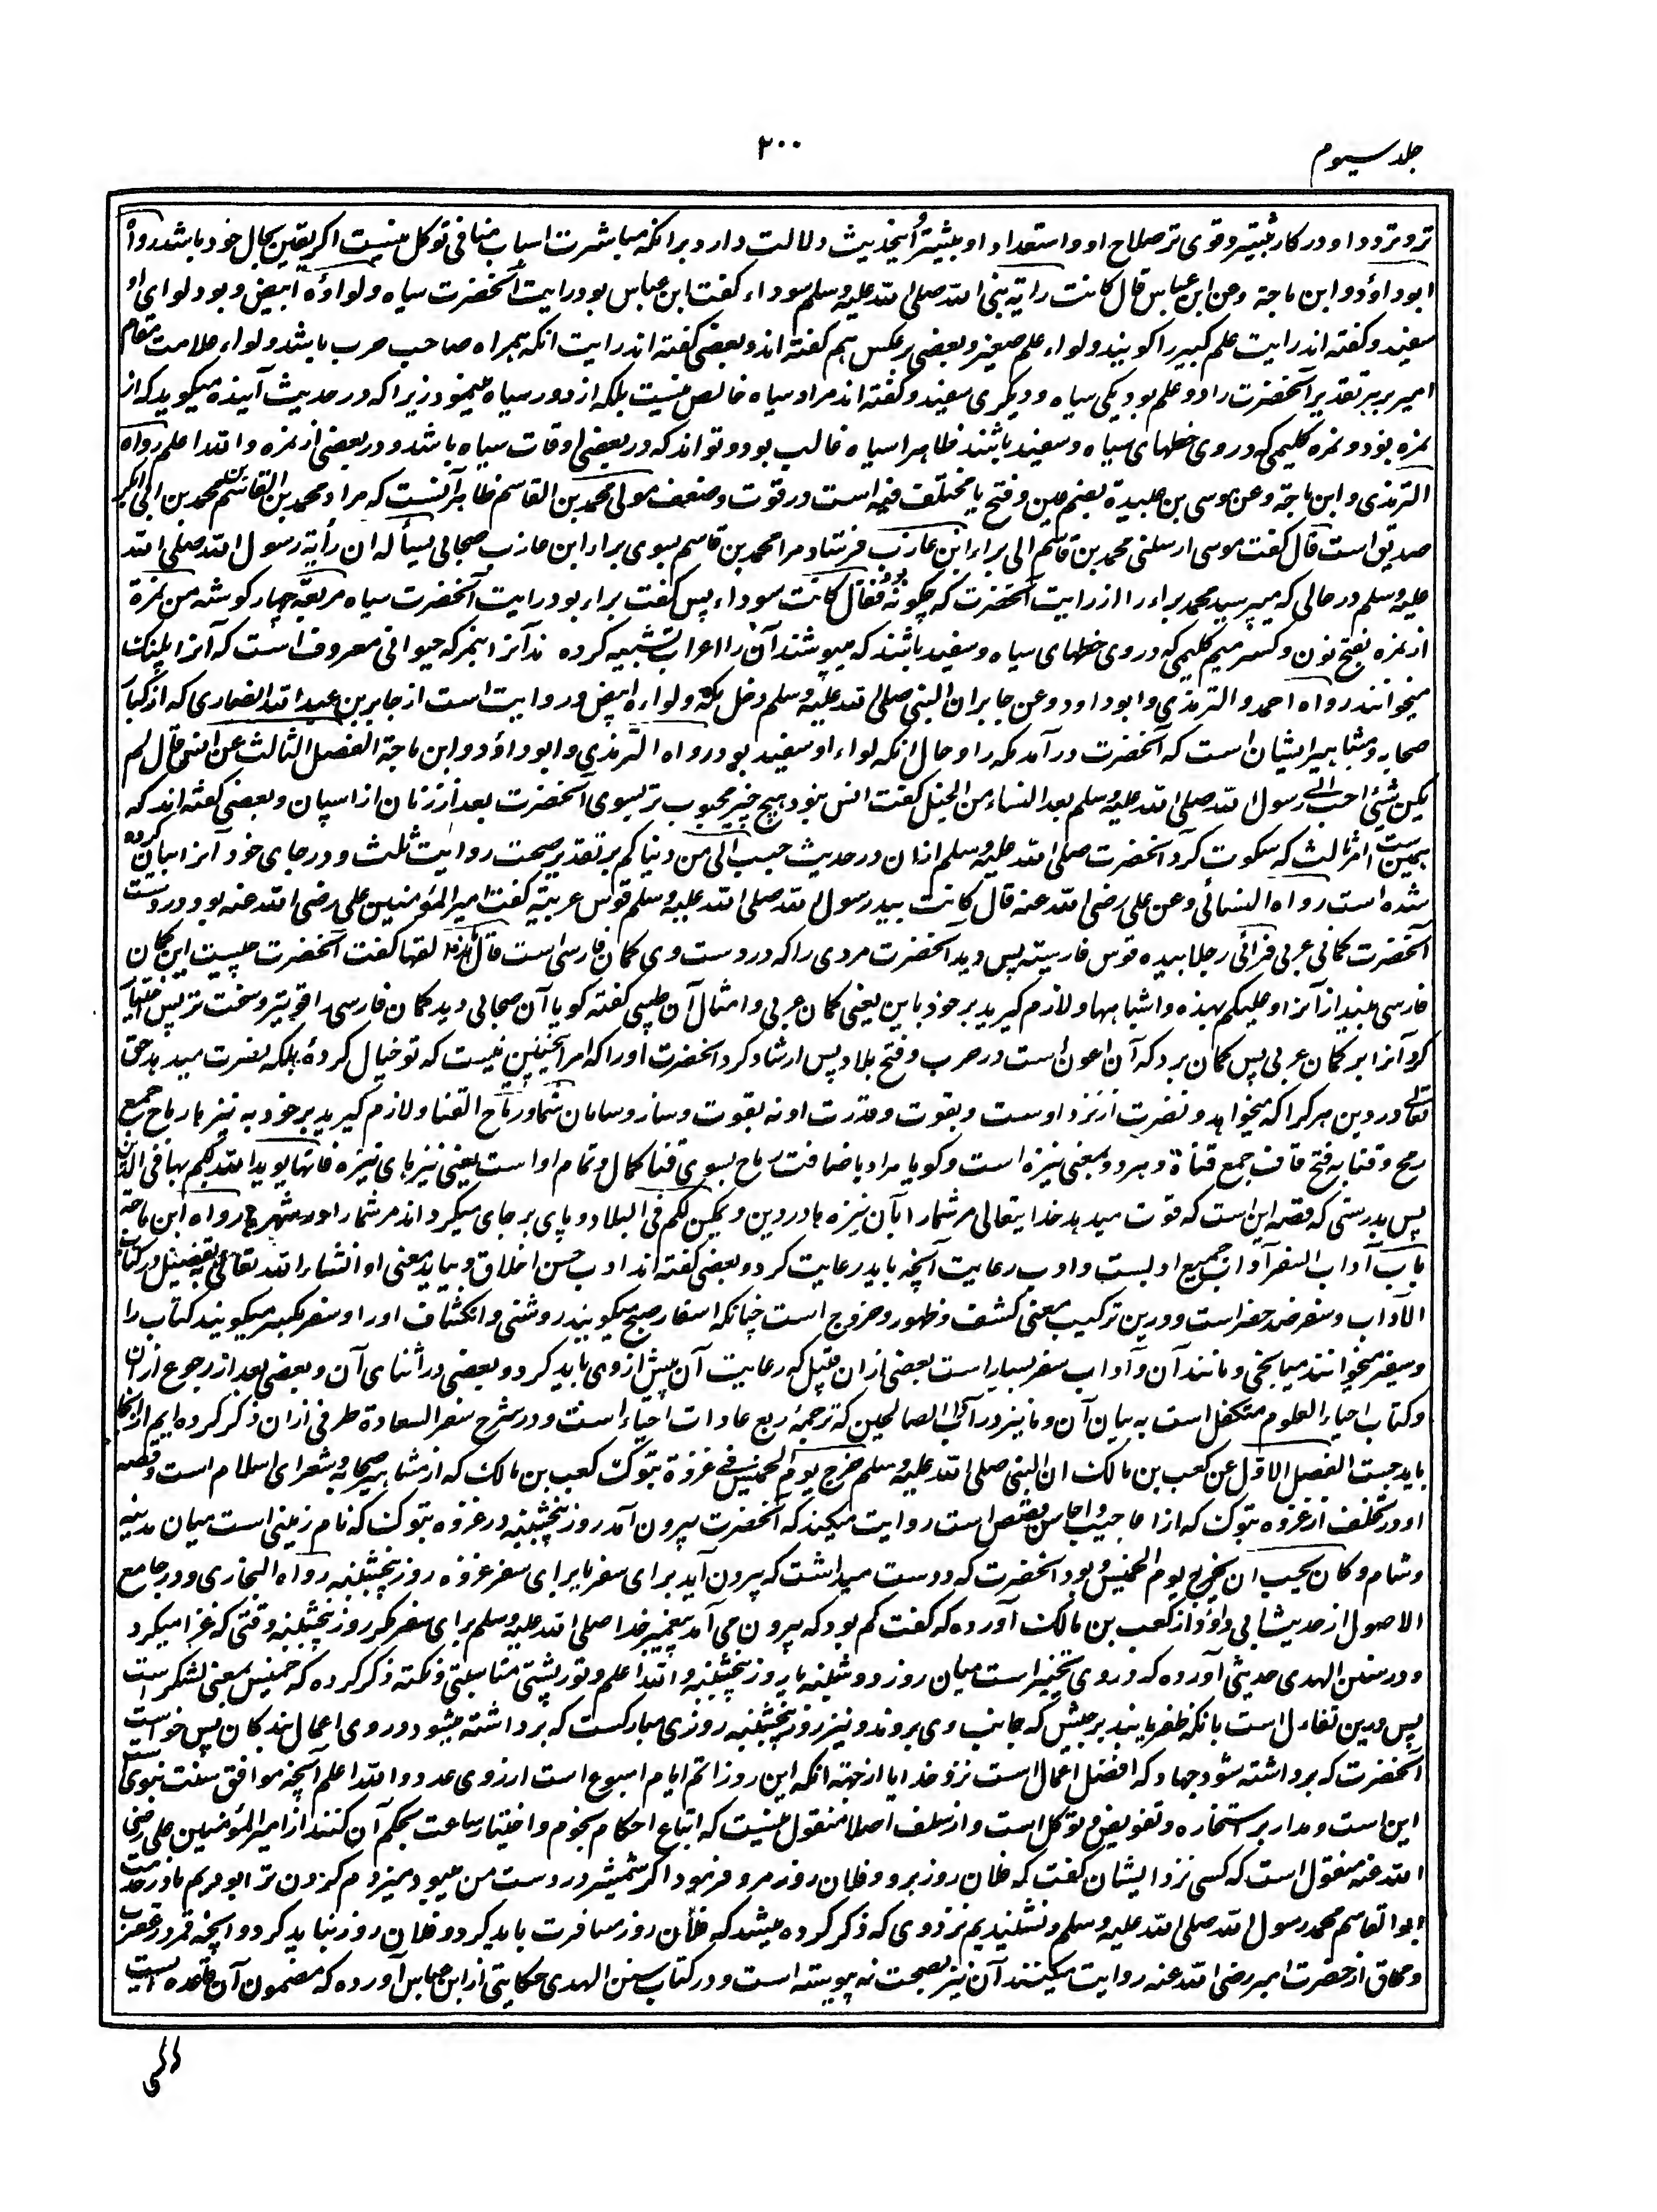 جلد سیوم
۲۰۰
تر و تردد او در کار بیشتر و قوی تر صلاح او و استعداد او بیشتر اینحدیث دلالت دارد برانکه مباشرت اسباب منافی توکل نیست اگر یقین بحال خود باشد رواه
ابو داؤد و ابن ماجة وعن ابن عباس قال کانت رایة نبی الله صلی الله علیه وسلم سوداء گفت ابن عباس بود رایت آنحضرت سیاه ولواؤه ابیض و بود لوای او
سفید و گفته اند رایت علم کبیر را گویند ولواء علم صغیر و بعضی برعکس هم گفته اند و بعضی گفته اند رایت انکه همراه صاحب حرب باشد ولواء علامت مقام
امیر بر هر تقدیر آنحضرت را دو علم بود یکی سیاه و دیگری سفید و گفته اند مراد سیاه خالص نیست بلکه از دور سیاه مینمود زیرا که در حدیث آینده میگوید که از
نمره بود و نمره گلیمی که در وی خطهای سیاه و سفید باشند ظاهرا سیاه غالب بود و تواند که در بعضی اوقات سیاه باشد و در بعضی از نمره والله اعلم رواه
الترمذی وابن ماجة وعن موسی بن عبیدة بضم عین و فتح با مختلف فیه است در قوت و ضعف مولی محمد بن القاسم ظاهر آنست که مراد محمد بن القاسم بن محمد بن ابی بکر
صدیق است قال گفت موسی ارسلنی محمد بن قاسم الی براء ابن عازب فرستاد مرا محمد بن قاسم بسوی براء ابن عازب صحابی یسأله ان رأیة رسول الله صلی الله
علیه وسلم در حالی که میپرسید محمد براء را از رایت آنحضرت که چگونه بود فقال کانت سوداء پس گفت براء بود رایت آنحضرت سیاه مربعة چهار گوشه من نمرة
از نمره بفتح نون و کسر میم گلیمی که در وی خطهای سیاه و سفید باشند که میپوشند آن را اعراب تشبیه کرده اند آنرا بنمر که حیوانی معروف است که آنرا پلنگ
میخوانند رواه احمد والترمذی وابو داود وعن جابر ان النبی صلی الله علیه وسلم دخل مکة ولواءه ابیض و روایت است از جابر بن عبد الله انصاری که از کبار
صحابه و مشاهیر ایشان است که آنحضرت در آمد مکه را و حال انکه لواء او سفید بود رواه الترمذی وابو داؤد وابن ماجة الفصل الثالث عن انس قال لم
یکن شیئ احب الی رسول الله صلی الله علیه وسلم بعد النساء من الخیل گفت انس نبود هیچ چیز محبوب تر بسوی آنحضرت بعد از زنان از اسپان و بعضی گفته اند که
همین است امر ثالث که سکوت کرد آنحضرت صلی الله علیه وسلم ازان در حدیث حبب الی من دنیاکم بر تقدیر صحت روایت ثلث و در جای خود آنرا بیان کرده
شده است رواه النسائی وعن علی رضی الله عنه قال کانت بید رسول الله صلی الله علیه وسلم قوس عربیة گفت امیر المؤمنین علی رضی الله عنه بود در دست
آنحضرت کمانی عربی فرأی رجلا بیده قوس فارسیة پس دید آنحضرت مردی را که در دست وی کمان فارسی است قال ما هذه القها گفت آنحضرت چیست این کمان
فارسی بینداز آنرا وعلیکم بهذه واشباهها ولازم گیرید بر خود باین یعنی کمان عربی و امثال آن طیبی گفته گویا آن صحابی دید کمان فارسی را قوی تر و سخت تر پس اختیار
کرد آنرا بر کمان عربی پس گمان برد که آن اعون است در حرب و فتح بلاد پس ارشاد کرد آنحضرت او را که امر اینچنین نیست که تو خیال کردهٔ بلکه نصرت میدهد حق
تعالی در دین هر کرا که میخواهد و نصرت از نزد اوست و بقوت و قدرت او نه بقوت و ساز و سامان شما ورماح القنا ولازم گیرید بر خود به نیزها رماح جمع
رمح و قنا به فتح قاف جمع قناة و هر دو بمعنی نیزه است و گویا مراد باضافت رماح بسوی قنا کمال و تمام او است یعنی نیزهای نیزه فانها یوید الله لکم بها فی الدین
پس بدرستی که قصه این است که قوت میدهد خدایتعالی مر شما را بآن نیزه ها در دین ویمکن لکم فی البلاد و پای برجای میگرداند مر شما را در شهرها رواه ابن ماجة
باب آداب السفر آداب جمع ادبست و ادب رعایت آنچه باید رعایت کرد و بعضی گفته اند ادب حسن اخلاق و بیاید معنی او انشاء الله تعالی به تفصیل در کتاب
الآداب و سفر ضد حضر است و درین ترکیب معنی کشف و ظهور و خروج است چنانکه اسفار صبح میگویند روشنی و انکشاف او را و سفر بکسر میگویند کتاب را
و سفیر میخوانند میانجی و مانند آن و آداب سفر بسیار است بعضی ازان قبیل که رعایت آن پیش از وی باید کرد و بعضی در اثنای آن و بعضی بعد از رجوع ازان
و کتاب احیاء العلوم متکفل است به بیان آن و ما نیز در آداب الصالحین که ترجمهٔ ربع عادات احیاء است و در شرح سفر السعادة طرفی ازان ذکر کرده ایم ازانجا
باید جست الفصل الاول عن کعب بن مالک ان النبی صلی الله علیه وسلم خرج یوم الخمیس فی غزوة تبوک کعب بن مالک که از مشاهیر صحابه و شعرای اسلام است و قصه
او در تخلف از غزوه تبوک که از اعاجیب و احاسن قصص است روایت میکند که آنحضرت بیرون آمد روز پنجشنبه در غزوه تبوک که نام زمینی است میان مدینه
و شام وکان یحب ان یخرج یوم الخمیس و بود آنحضرت که دوست میداشت که بیرون آید برای سفر یا برای سفر غزوه روز پنجشنبه رواه البخاری و در جامع
الاصول از حدیث ابی داؤد از کعب بن مالک آورده که گفت کم بود که بیرون می آمد پیغمبر خدا صلی الله علیه وسلم برای سفر مگر روز پنجشنبه وقتی که غزا میکرد
و در سنن الهدی حدیثی آورده که در وی تخییر است میان روز دوشنبه یا روز پنجشنبه والله اعلم و تورپشتی مناسبتی و نکته ذکر کرده که خمیس بمعنی لشکر است
پس درین تفاول است بانکه ظفر یابند بر جیش که جانب وی بروند و نیز روز پنجشنبه روزی مبارکست که برداشته میشود در وی اعمال بندگان پس خواست
آنحضرت که برداشته شود جهاد که افضل اعمال است نزد خدا یا از جهت انکه این روز اتم ایام اسبوع است از روی عدد والله اعلم آنچه موافق سنت نبوی است
این است و مدار بر استخاره و تفویض و توکل است و از سلف اصلا منقول نیست که اتباع احکام نجوم و اختیار ساعت بحکم آن کنند از امیر المؤمنین علی رضی
الله عنه منقول است که کسی نزد ایشان گفت که فلان روز برو و فلان روز مرو فرمود اگر شمشیر در دست من میبود میزدم گردن ترا بودیم ما در خدمت
ابو القاسم محمد رسول الله صلی الله علیه وسلم و نشنیدیم نزد وی که ذکر کرده میشد که فلان روز مسافرت باید کرد و فلان روز نباید کرد و آنچه قمر در عقرب
و محاق از حضرت امیر رضی الله عنه روایت میکنند آن نیز بصحت نه پیوسته است و در کتاب سنن الهدی حکایتی از ابن عباس آورده که مضمون آن قاعده است